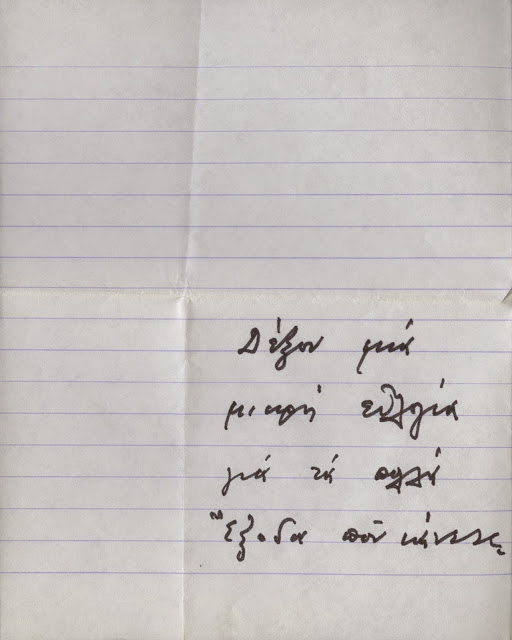 Δέξου μιά
μικρή εὐλογία
γιά τά πολλά
ἔξοδα πού κάνεις